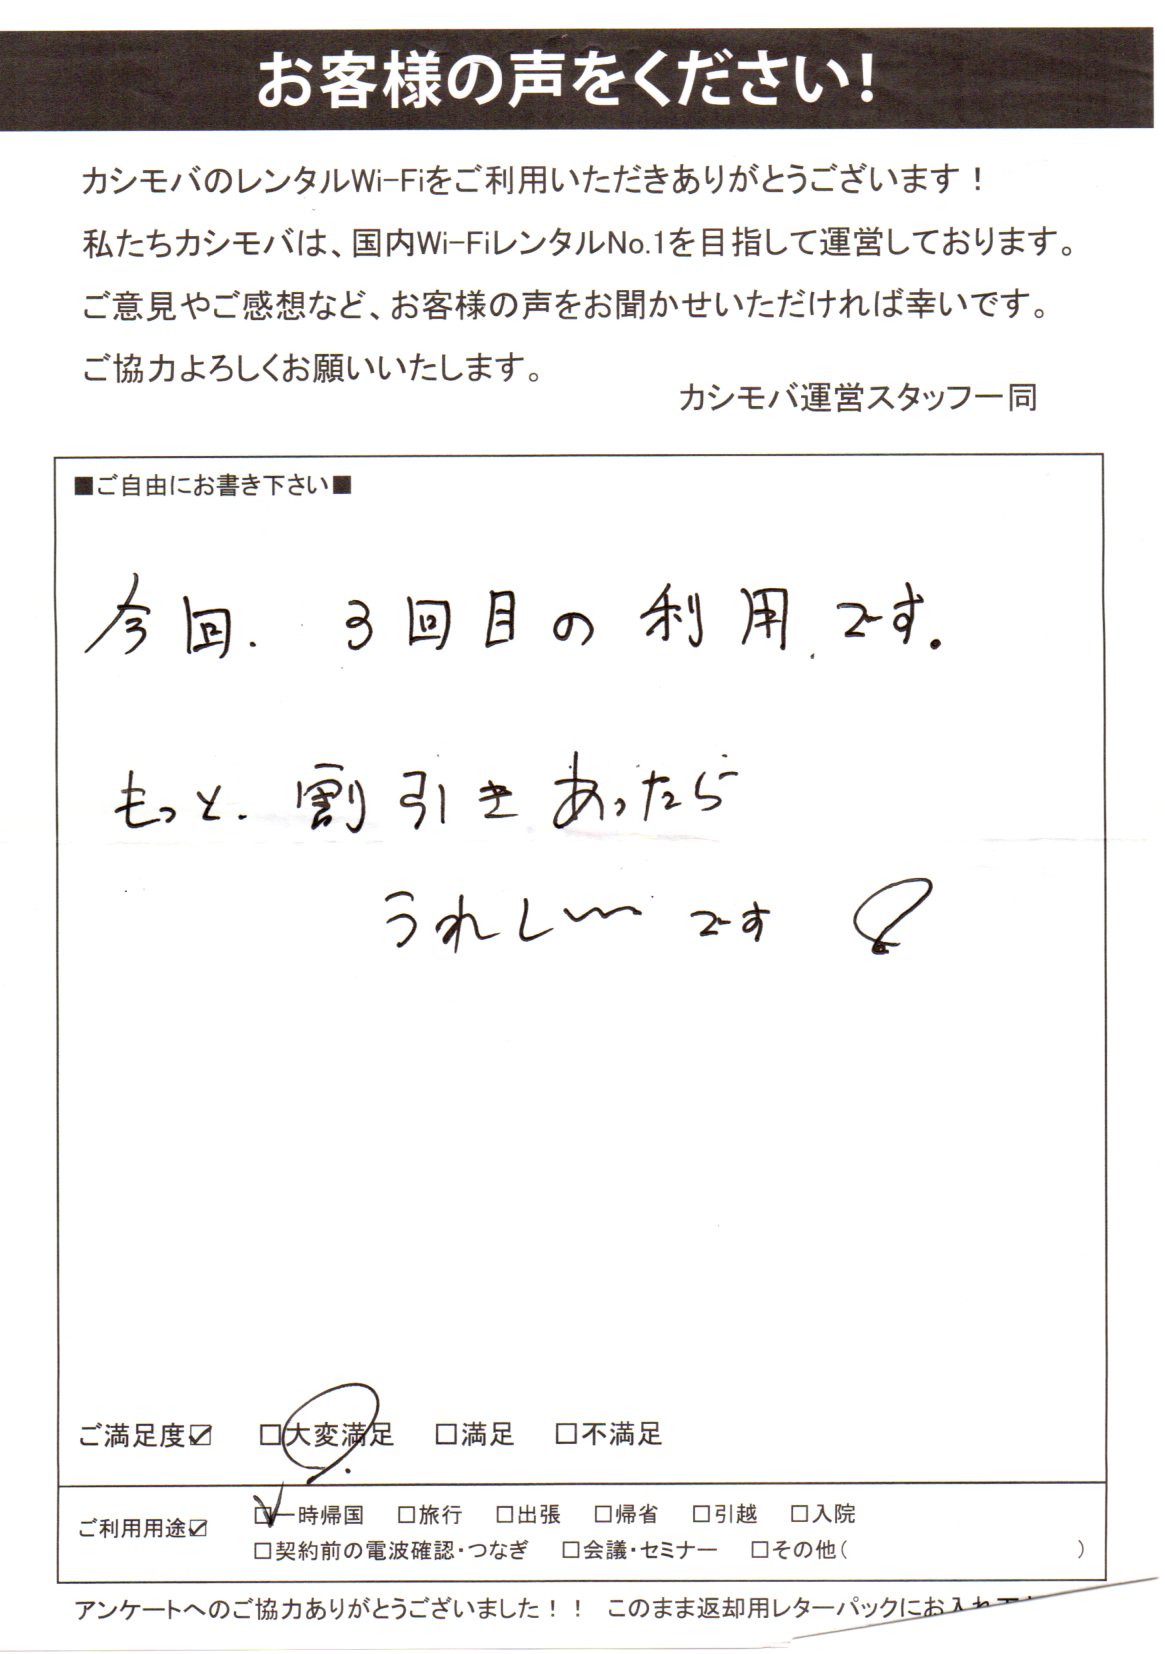 お客様の声をください！
カシモバのレンタルWi-Fiをご利用いただきありがとうございます！
私たちカシモバは、国内Wi-FiレンタルNo.1を目指して運営しております。
ご意見やご感想など、お客様の声をお聞かせいただければ幸いです。
ご協力よろしくお願いいたします。
カシモバ運営スタッフ一同
■ご自由にお書き下さい■
今回、3回目の利用です。
もっと、割引きあったら
うれし〜〜です
ご満足度☑ □大変満足 □満足 □不満足
ご利用用途☑ ☑一時帰国 □旅行 □出張 □帰省 □引越 □入院
□契約前の電波確認・つなぎ □会議・セミナー □その他（ ）
アンケートへのご協力ありがとうございました！！ このまま返却用レターパックにお入れ